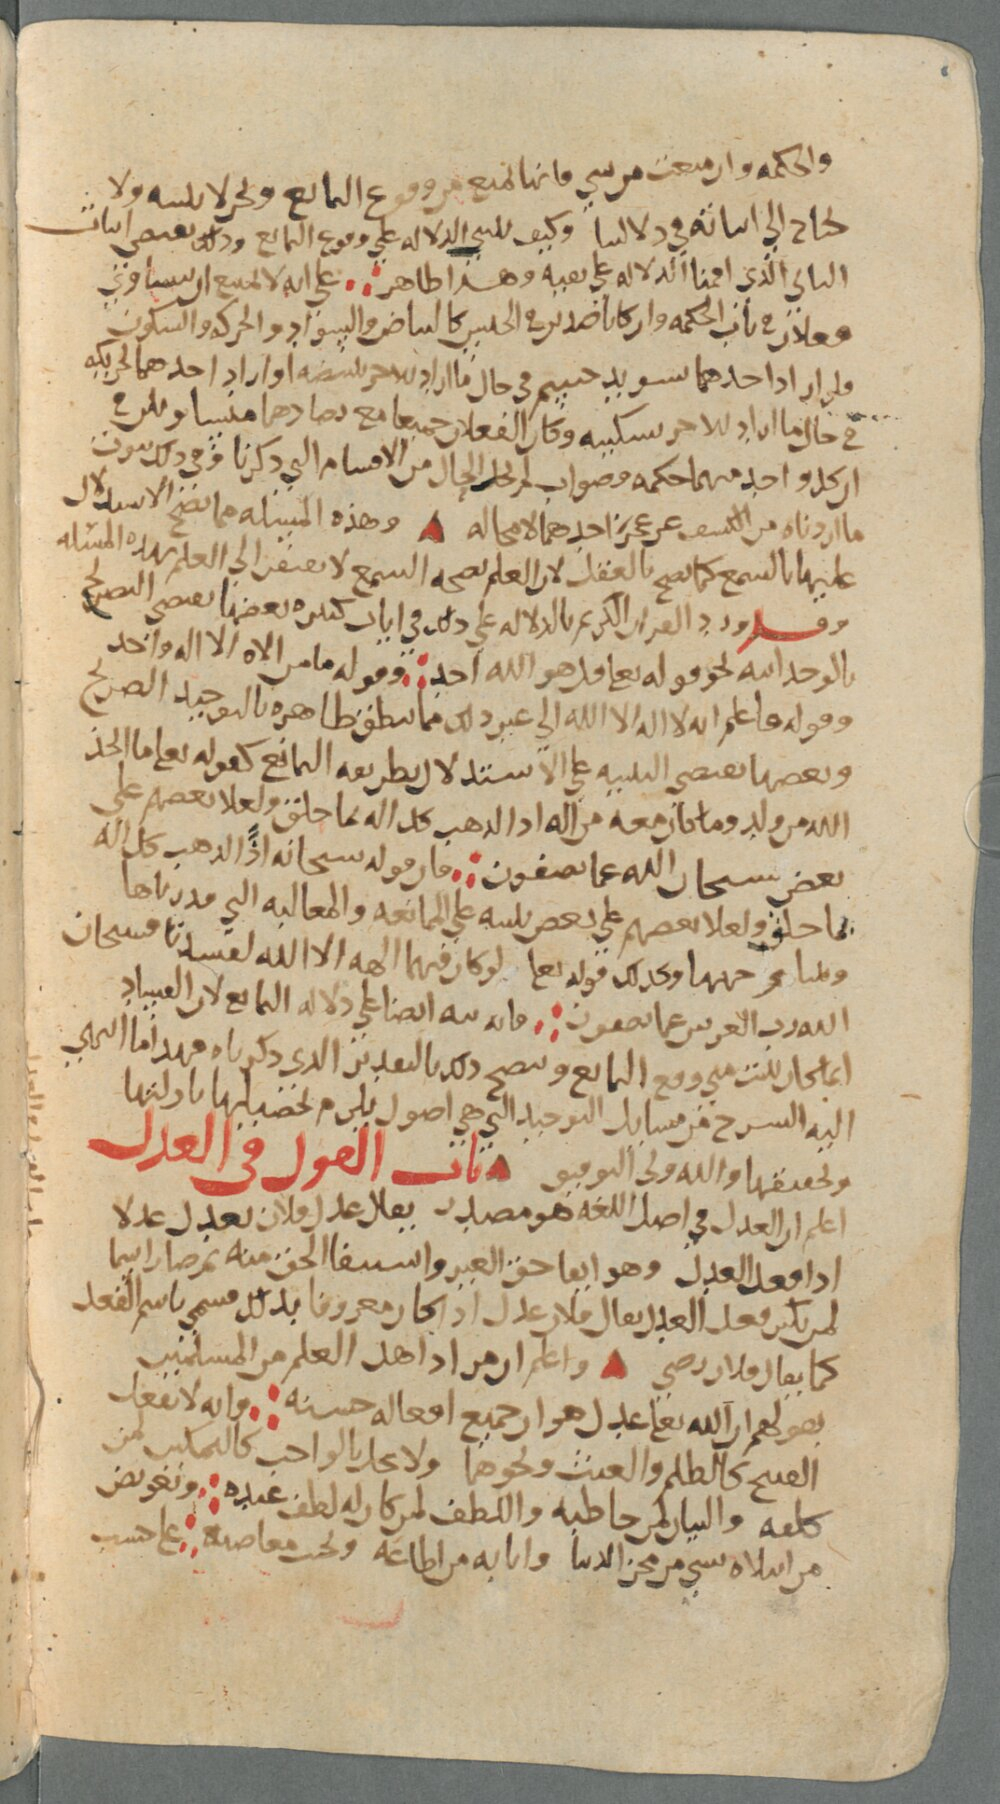 والحكمه وان منعت من شي فانما تمنع من وقوع التمانع ونحن لا نلتبسه ولا
نحتاج الى اثباته في دلالتنا وكيف نلتبس الدلاله على وقوع التمانع وذلك يقتضي اثبات
الثاني الذي اقمنا الدلاله على نفيه وهذا ظاهر على انه لا يمتنع ان يتساوى
فعلان في باب الحكمه وان كانا ضدين في الجنس كالبياض والسواد والحركه والسكون
فلو اراد احدهما تسويد جسم في حال ما اراد الاخر تبييضه او اراد احدهما تحريكه
في حال ما اراد الاخر تسكينه وكان الفعلان جميعا مع تضادهما متساويين في
ان كل واحد منهما حكمه وصواب لم يخل الحال من الاقسام التي ذكرنا وفي ذلك ثبوت
ما اردناه من الكشف عن عجز احدهما لا محاله وهذه المسئله مما يصح الاستدلال
عليها بالسمع كما يصح بالعقل لان العلم بصحه السمع لا يفتقر الى العلم بهذه المسئله
وقد ورد القران الكريم بالدلاله على ذلك في ايات كثيره بعضها يقتضي التصريح
بالوحدانيه نحو قوله تعا قل هو الله احد وقوله ما من الاه الا اله واحد
وقوله فاعلم انه لا اله الا الله الى غير ذلك مما ينطق ظاهره بالتوحيد الصريح
وبعضها يقتضي التنبيه على الاستدلال بطريقه التمانع كقوله تعا ما اتخذ
الله من ولد وما كان معه من اله اذا لذهب كل اله بما خلق ولعلا بعضهم على
بعض سبحان الله عما يصفون فان قوله سبحانه اذًا لذهب كل اله
بما خلق ولعلا بعضهم على بعض تنبيه على الممانعه والمغالبه التي قدرناها
وكذلك قوله تعا لو كان فيهما الهه الا الله لفسدتا فسبحان
الله رب العرش عما يصفون فانه نبه ايضا على دلاله التمانع لان الفساد
انما كان يثبت متى وقع التمانع ويصح ذلك بالتقدير الذي ذكرناه فهذا ما انتهى
اليه الشرح من مسايل التوحيد التي هي اصول يلزم تحصيلها بادلتها
وتحقيقها والله ولي التوفيق باب القول في العدل
اعلم ان العدل في اصل اللغه هو مصدر يقال عدل فلان يعدل عدلا
اذا فعل العدل وهو ايفا حق الغير واستيفا الحق منه ثم صار اسما
لمن يكثر فعل العدل يقال فلان عدل اذا كان معروفا بذلك فسمي باسم الفعل
كما يقال فلان رضي واعلم ان مراد اهل العلم من المسلمين
بقولهم ان الله تعا عدل هو ان جميع افعاله حسنه وانه لا يفعل
القبيح كالظلم والعبث ونحوهما ولا يخل بالواجب كالتمكين لمن
كلفه والبيان لمن خاطبه واللطف لمن كان له لطف عنده وتعويض
من ابتلاه بشي من محن الدنيا واثابه من اطاعه وتجنب معاصيه على حسب